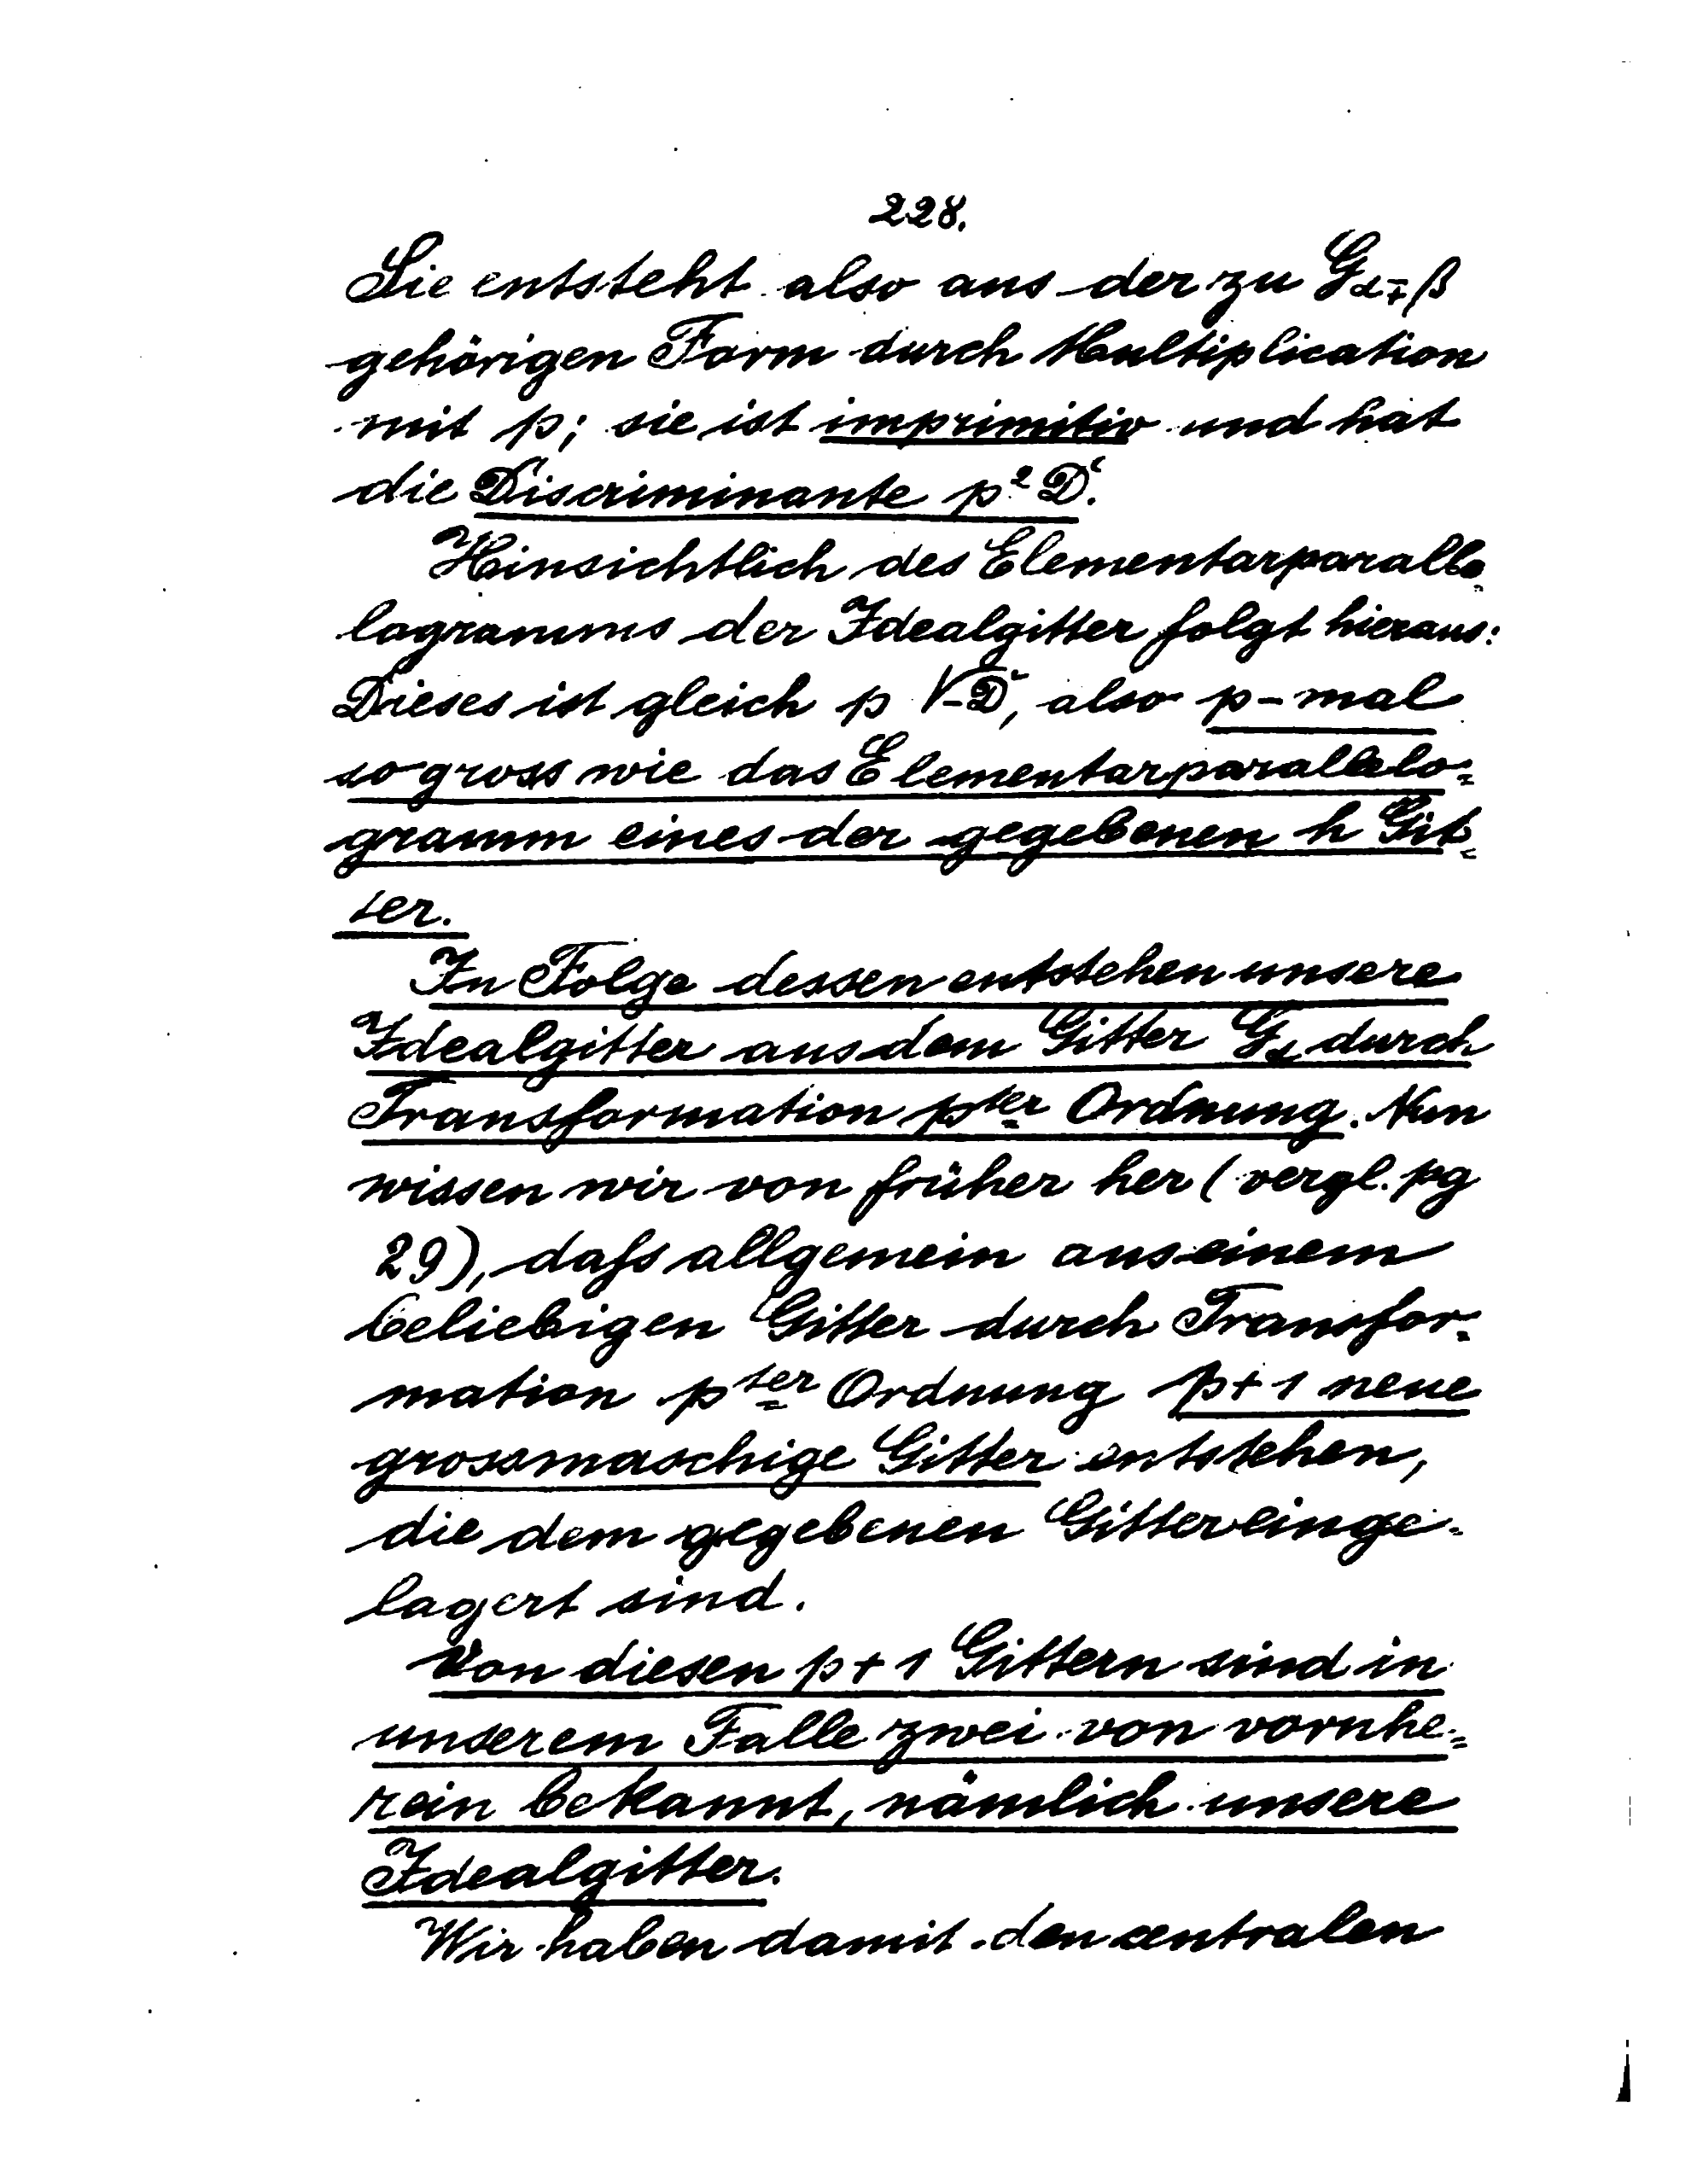 228.
Sie entsteht also aus der zu G_{α∓β}
gehörigen Form durch Multiplication
mit p; sie ist imprimitiv und hat
die Discriminante p² D.
Hinsichtlich des Elementarparalle-
logramms der Idealgitter folgt hieraus:
Dieses ist gleich p √-D, also p-mal
so gross wie das Elementarparallelo-
gramm eines der gegebenen h Git-
ter.
In Folge dessen entstehen unsere
Idealgitter aus dem Gitter G_α durch
Transformation pter Ordnung. Nun
wissen wir von früher her (vergl. pg
29), dafs allgemein aus einem
beliebigen Gitter durch Transfor-
mation pter Ordnung p+1 neue
grossmaschige Gitter entstehen,
die dem gegebenen Gitter einge-
lagert sind.
Von diesen p+1 Gittern sind in
unserem Falle zwei von vornhe-
rein bekannt, nämlich unsere
Idealgitter.
Wir haben damit den centralen